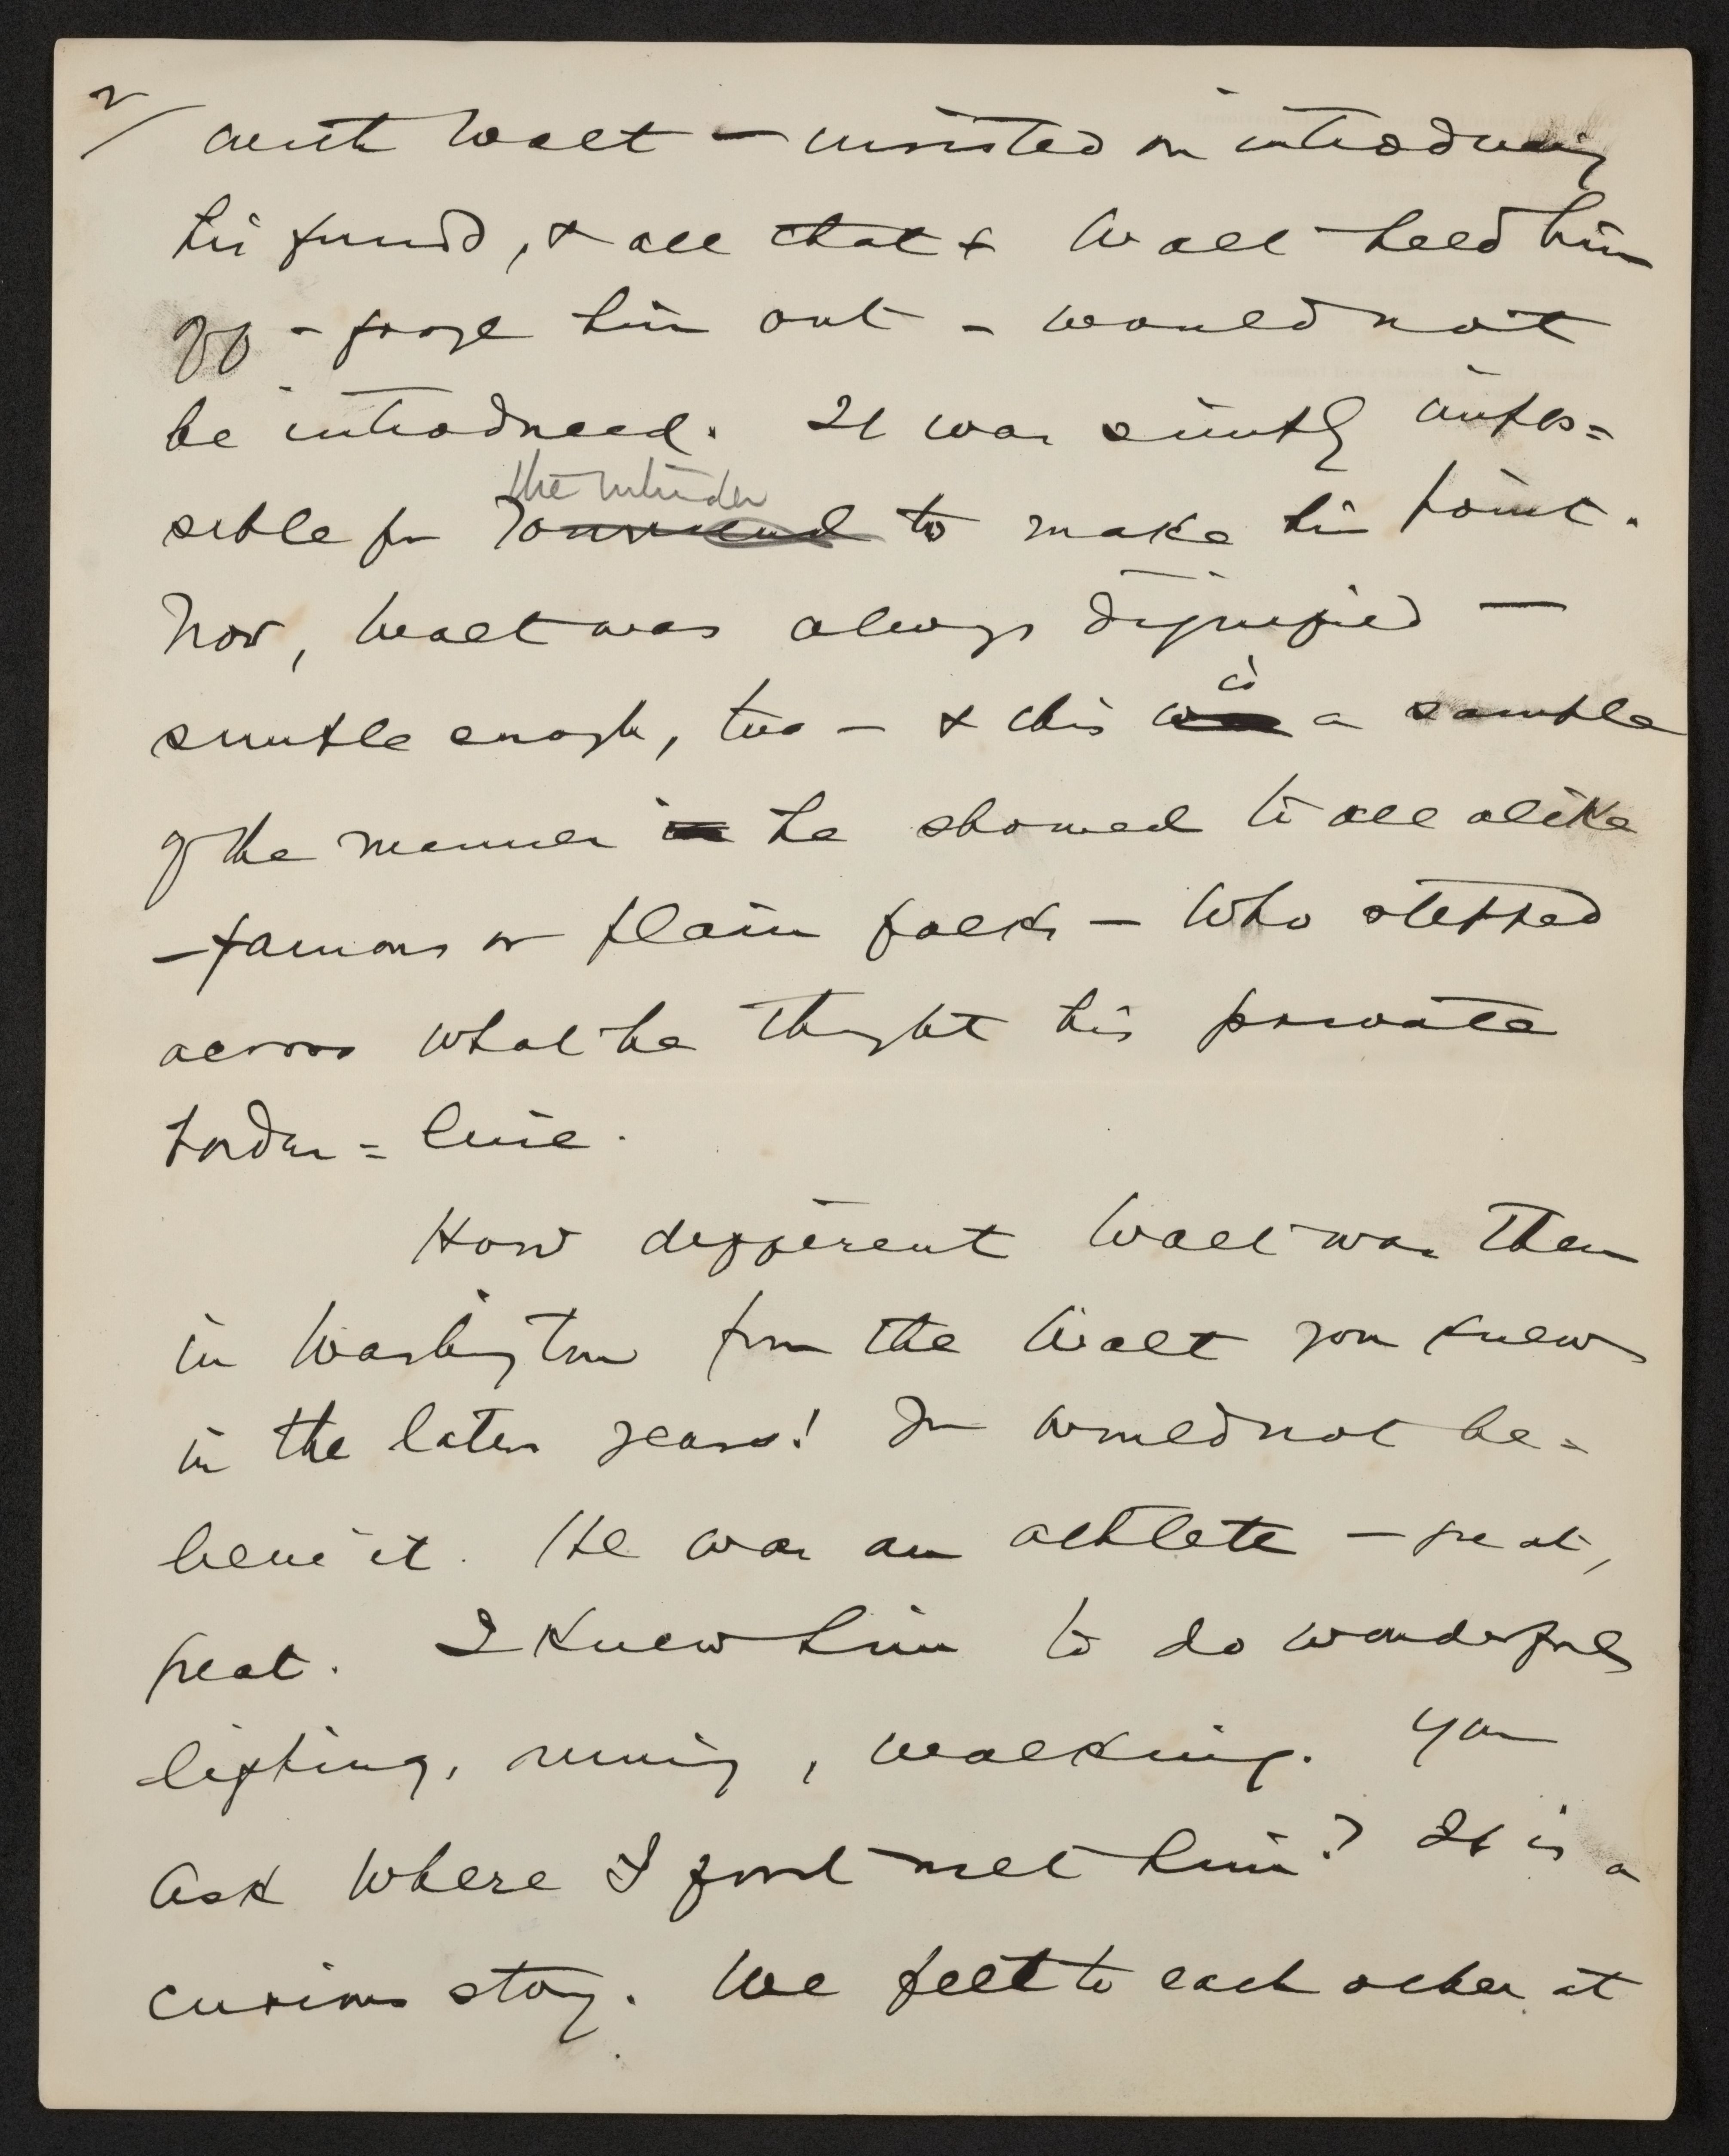 2/ with Walt — insisted on introducing
his friend, & all that & Walt held him
off – froze him out – would not
be introduced. It was simply impos=
the intruder
sible for Townsend to make his point.
Now, Walt was always dignified —
is
simple enough, too – & this was a sample
of the manner in he showed to all alike
– famous or plain folks – who stepped
across what he thought his private
border = line.
How different Walt was then
in Washington from the Walt you knew
in the later years! You would not be=
lieve it. He was an athlete – great,
great. I knew him to do wonderful
lifting, running, walking. You
ask where I first met him? It is a
curious story. We felt to each other at